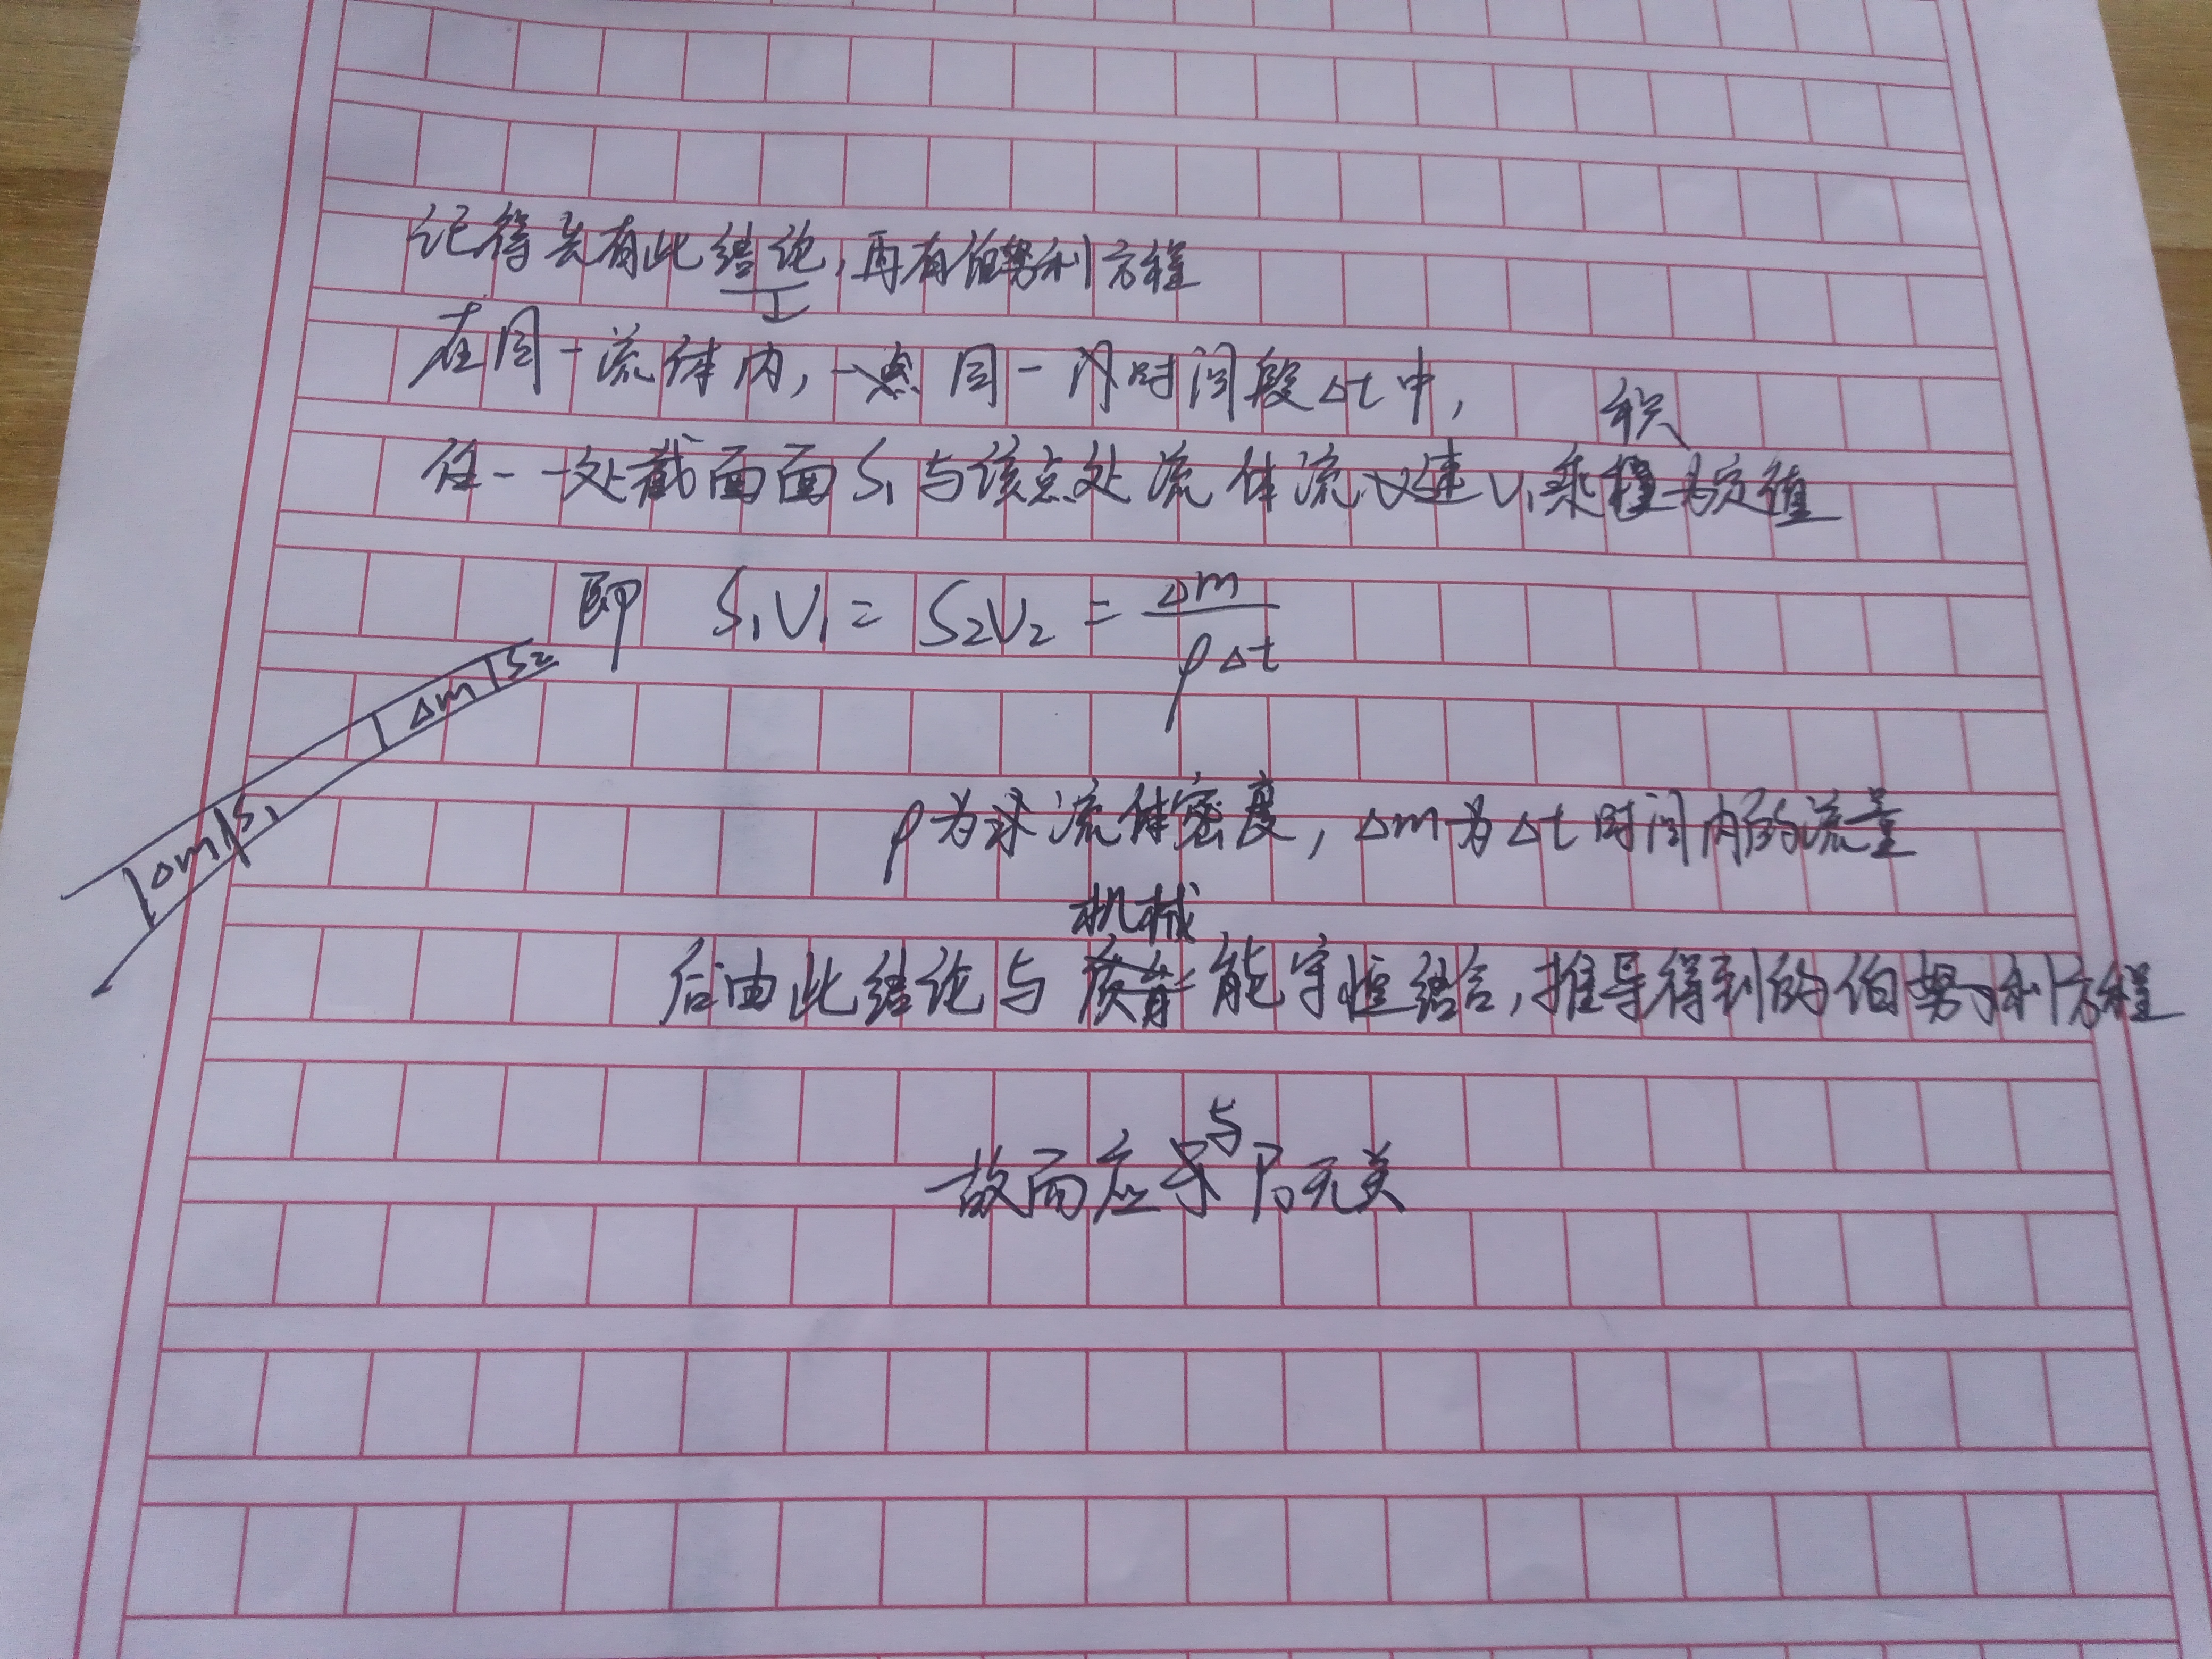 记得先有此结论,再有伯努利方程
在同一流体内,同一内时间段Δt中,
任一一处截面面S₁与该点处流体流速V₁乘积为定值
即 S₁V₁ = S₂V₂ = Δm/ρΔt
Δm S₂
Δm S₁
ρ为求流体密度, Δm为Δt时间内的流量
后由此结论与机械能守恒结合,推导得到的伯努利方程
故而应与P₀无关